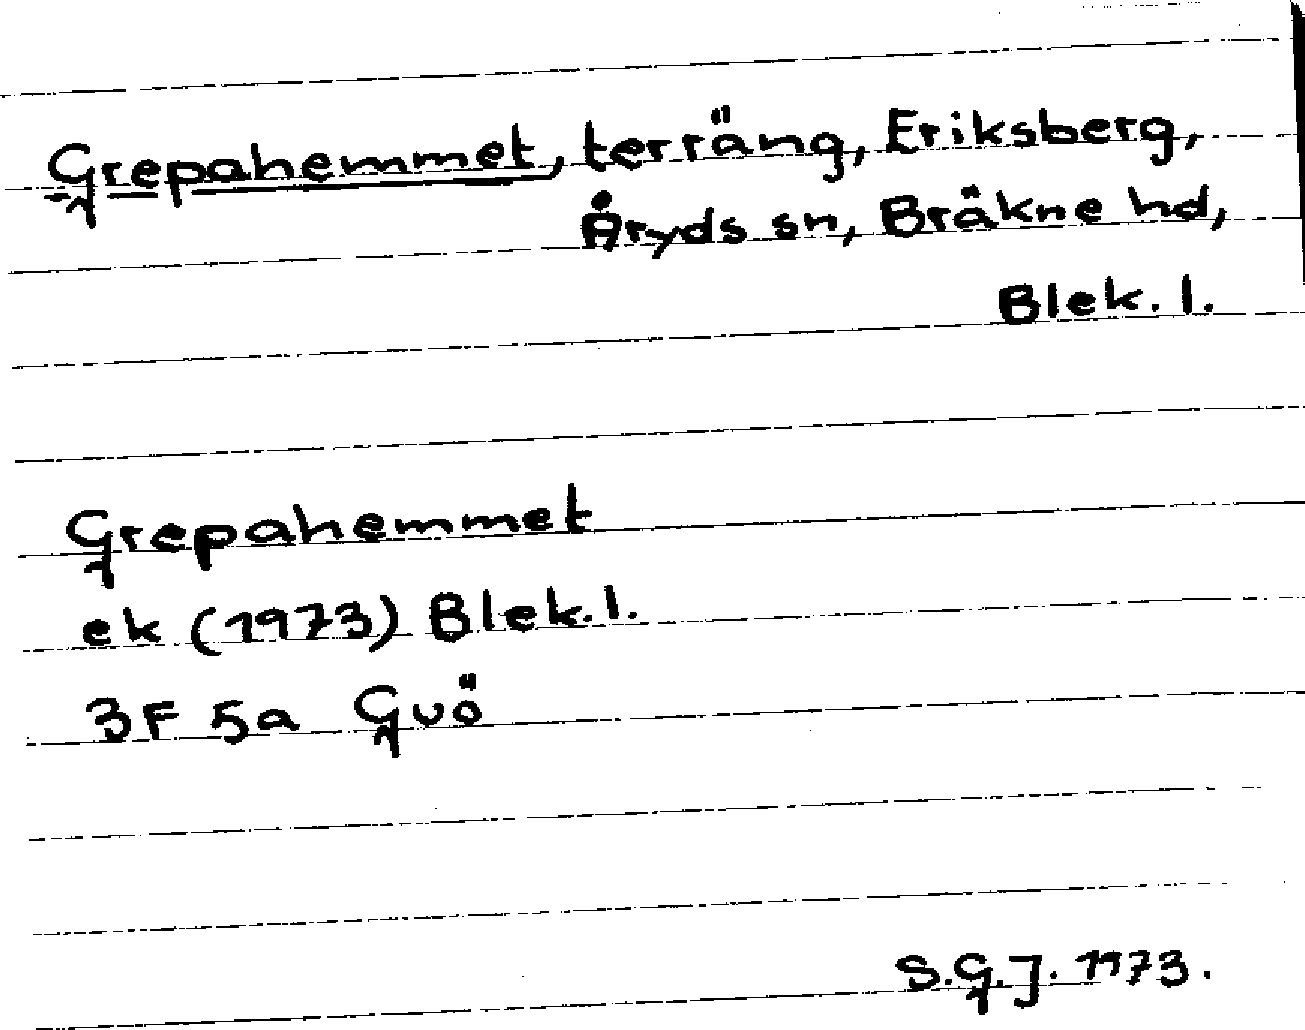 Grepahemmet, terräng, Eriksberg,
Åryds sn, Bräkne hd,
Blek. l.
Grepahemmet
ek (1973) Blek. l.
3F 5a Guö
S.G.J. 1973.